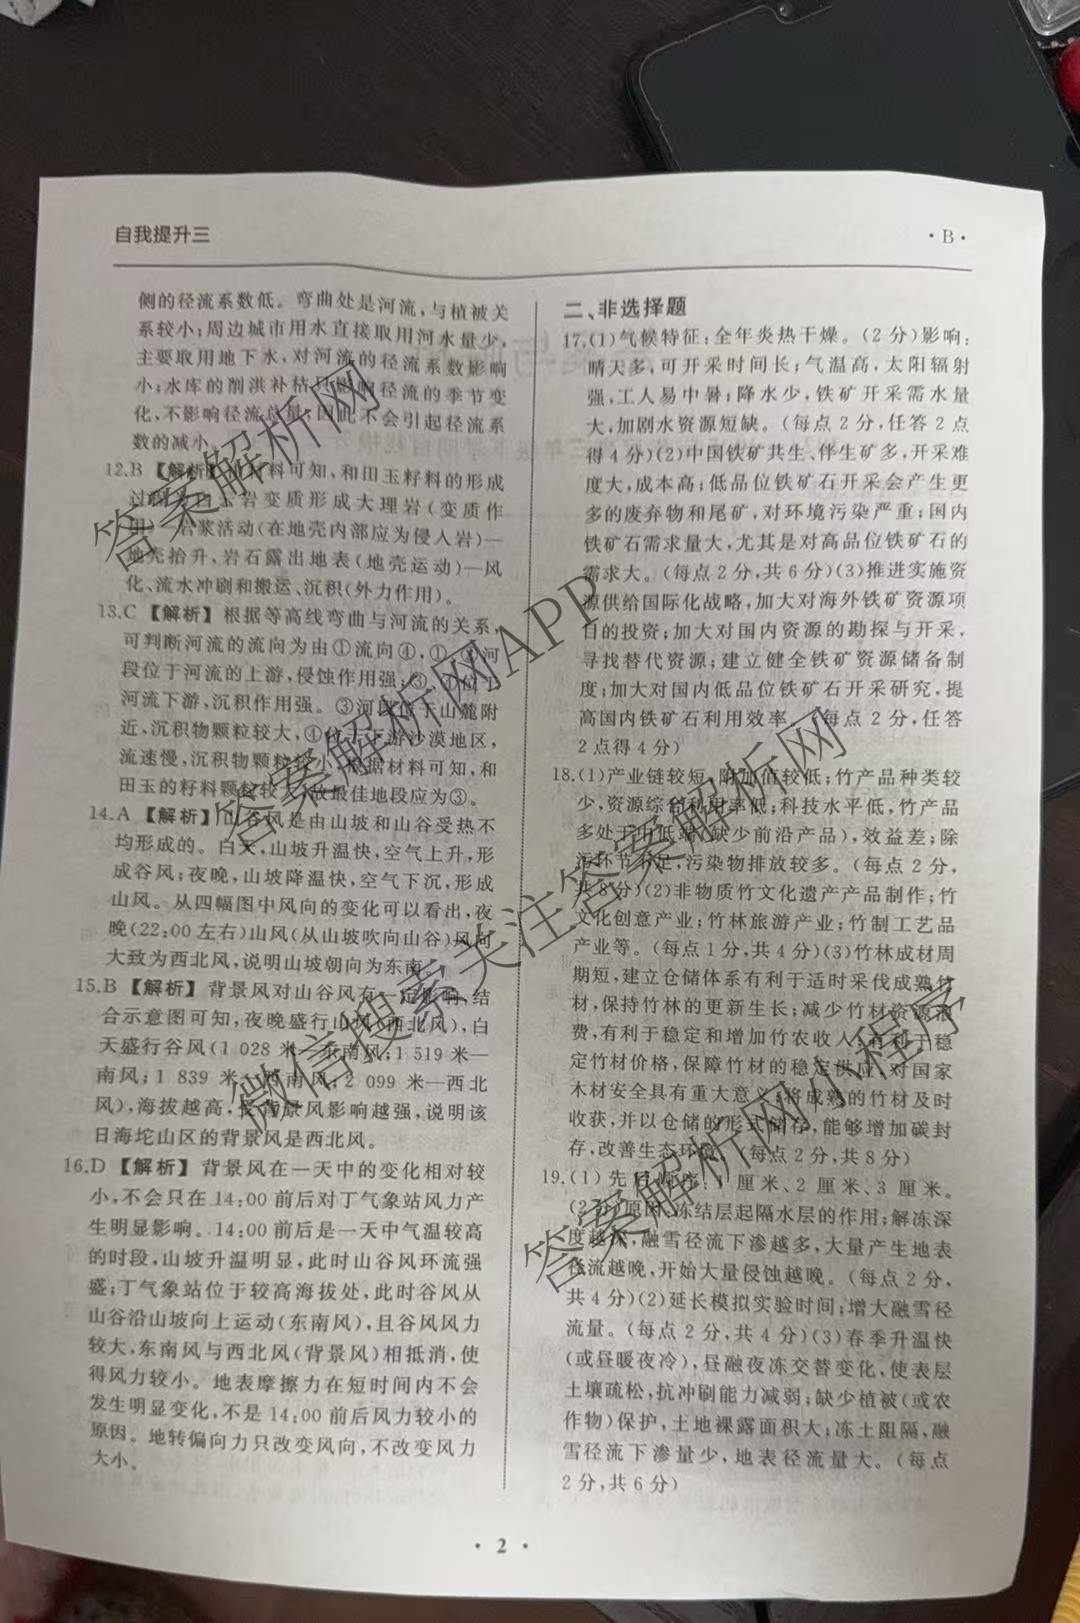 自我提升三
·B·
侧的径流系数低。弯曲处是河流,与植被关
系较小;周边城市用水直接取用河水量少,
主要取用地下水,对河流的径流系数影响
小;水库的削洪补枯只影响径流的季节变
化,不影响径流总量,因此不会引起径流系
数的减小。
12.B 【解析】 材料可知,和田玉籽料的形成
过 岩变质形成大理岩(变质作
用)—岩浆活动(在地壳内部应为侵入岩)—
地壳抬升、岩石露出地表(地壳运动)—风
化、流水冲刷和搬运、沉积(外力作用)。
13.C 【解析】根据等高线弯曲与河流的关系,
可判断河流的流向为由①流向④,①、②河
段位于河流的上游,侵蚀作用强;③、④位于
河流下游,沉积作用强。③河段位于山麓附
近、沉积物颗粒较大,④位于下游沙漠地区,
流速慢,沉积物颗粒较小。根据材料可知,和
田玉的籽料颗粒较大,故最佳地段应为③。
14.A 【解析】山谷风是由山坡和山谷受热不
均形成的。白天,山坡升温快,空气上升,形
成谷风;夜晚,山坡降温快,空气下沉,形成
山风。从四幅图中风向的变化可以看出,夜
晚(22:00左右)山风(从山坡吹向山谷)风向
大致为西北风,说明山坡朝向为东南。
15.B 【解析】背景风对山谷风有一定影响,结
合示意图可知,夜晚盛行山风(西北风),白
天盛行谷风(1 028 米—东南风;1 519 米—
南风;1 839 米—西南风;2 099 米—西北
风),海拔越高,受背景风影响越强,说明该
日海坨山区的背景风是西北风。
16.D 【解析】背景风在一天中的变化相对较
小,不会只在14:00前后对丁气象站风力产
生明显影响。14:00前后是一天中气温较高
的时段,山坡升温明显,此时山谷风环流强
盛;丁气象站位于较高海拔处,此时谷风从
山谷沿山坡向上运动(东南风),且谷风风力
较大,东南风与西北风(背景风)相抵消,使
得风力较小。地表摩擦力在短时间内不会
发生明显变化,不是14:00前后风力较小的
原因。地转偏向力只改变风向,不改变风力
大小。
二、非选择题
17.(1)气候特征:全年炎热干燥。(2分)影响:
晴天多,可开采时间长;气温高,太阳辐射
强,工人易中暑;降水少,铁矿开采需水量
大,加剧水资源短缺。(每点2分,任答2点
得4分)(2)中国铁矿共生、伴生矿多,开采难
度大,成本高;低品位铁矿石开采会产生更
多的废弃物和尾矿,对环境污染严重;国内
铁矿石需求量大,尤其是对高品位铁矿石的
需求大。(每点2分,共6分)(3)推进实施资
源供给国际化战略,加大对海外铁矿资源项
目的投资;加大对国内资源的勘探与开采,
寻找替代资源;建立健全铁矿资源储备制
度;加大对国内低品位铁矿石开采研究,提
高国内铁矿石利用效率。(每点2分,任答
2点得4分)
18.(1)产业链较短,附加值较低;竹产品种类较
少,资源综合利用率低;科技水平低,竹产品
多处于中低端(缺少前沿产品),效益差;除
污环节不足,污染物排放较多。(每点2分,
共8分)(2)非物质竹文化遗产产品制作;竹
文化创意产业;竹林旅游产业;竹制工艺品
产业等。(每点1分,共4分)(3)竹林成材周
期短,建立仓储体系有利于适时采伐成熟竹
材,保持竹林的更新生长;减少竹材资源浪
费,有利于稳定和增加竹农收入;有利于稳
定竹材价格,保障竹材的稳定供应,对国家
木材安全具有重大意义;将成熟的竹材及时
收获,并以仓储的形式储存,能够增加碳封
存,改善生态环境。(每点2分,共8分)
19.(1)先后顺序:1厘米、2厘米、3厘米。
(2分)原因:冻结层起隔水层的作用;解冻深
度越深,融雪径流下渗越多,大量产生地表
径流越晚,开始大量侵蚀越晚。(每点2分,
共4分)(2)延长模拟实验时间;增大融雪径
流量。(每点2分,共4分)(3)春季升温快
(或昼暖夜冷),昼融夜冻交替变化,使表层
土壤疏松,抗冲刷能力减弱;缺少植被(或农
作物)保护,土地裸露面积大;冻土阻隔,融
雪径流下渗量少,地表径流量大。(每点
2分,共6分)
答案解析网
答案解析网APP
微信搜索关注答案解析网
答案解析网小程序
· 2 ·